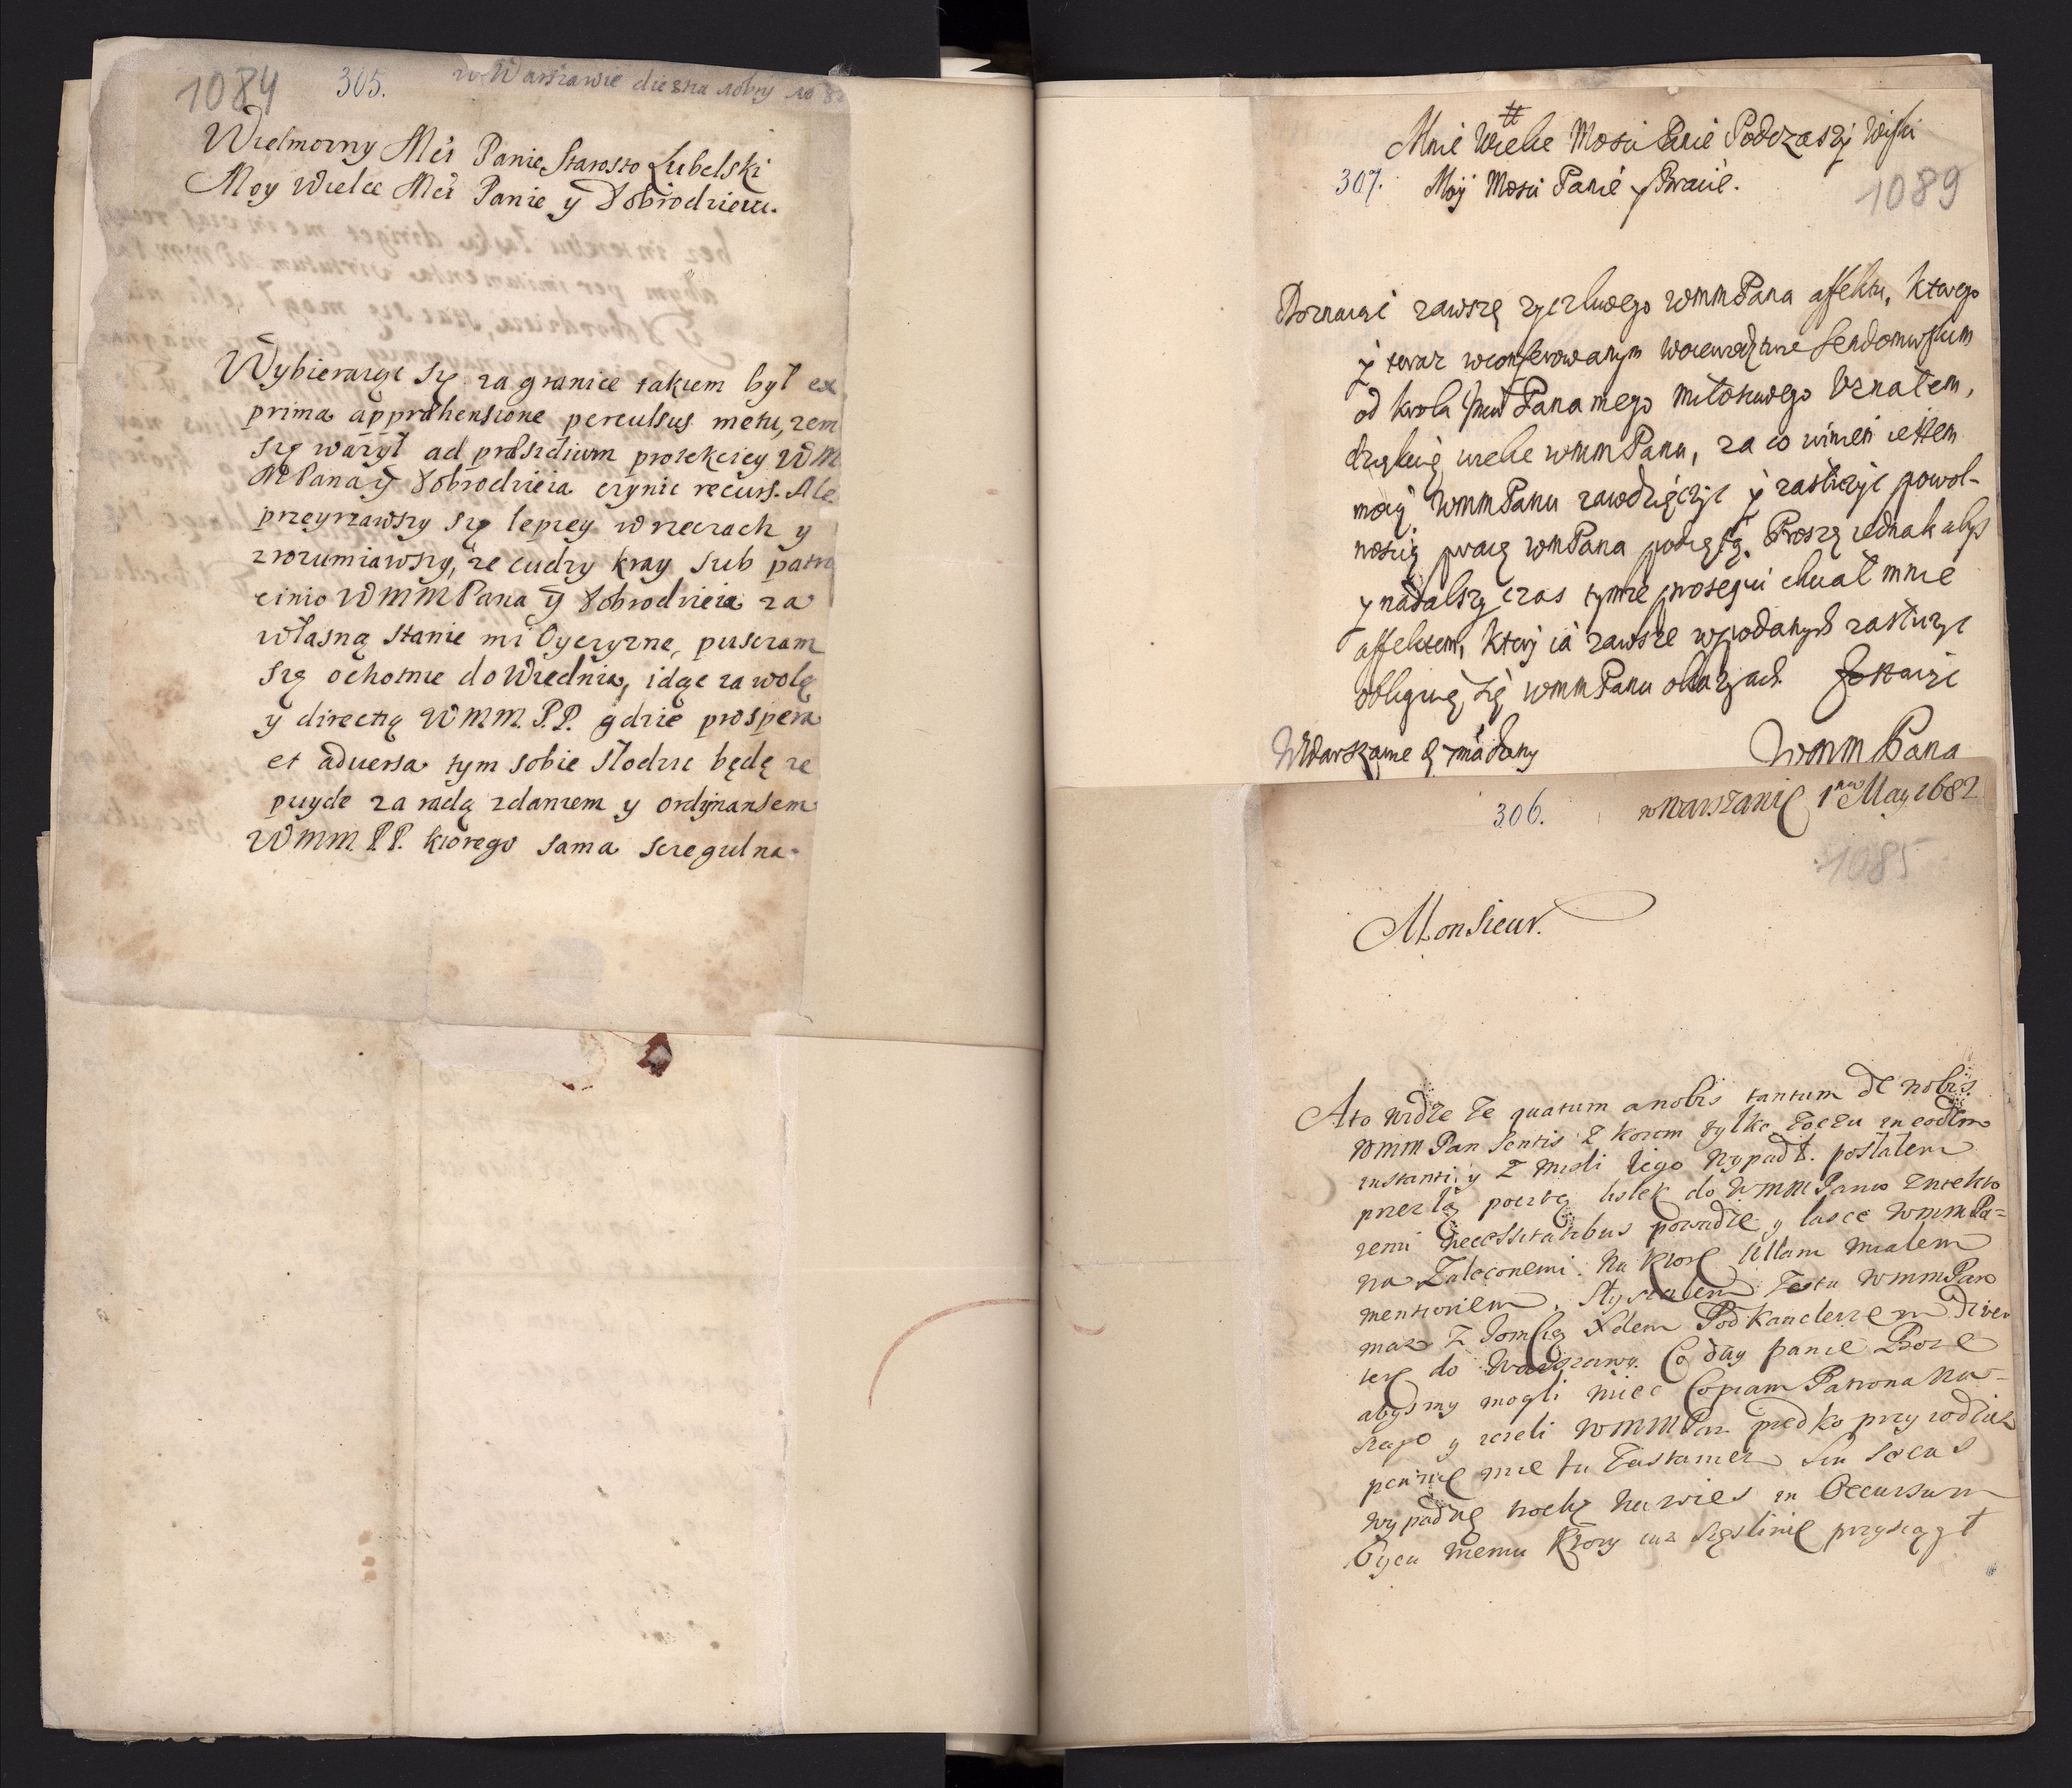 1084 305. w Warszawie die 8va 10bry 1682
Wielmozny Mći Panie Starosto Lubelski
Moy Wielce Mći Panie y Dobrodzieiu.
Wybieraiąc się za granice takiem był ex
prima appræhensione perculsus metu, zem
się ważył ad præsidium protekciey WM
MPana y Dobrodzieia czynic recurs. Ale
przeyrzawszy się lepiey w rzeczach y
zrozumiawszy, ze cudzy kray sub patro
cinio WMMPana y Dobrodzieia za
własną stanie mi Oyczyzne, puszczam
się ochotnie do Wiednia, idąc za wolą
y directią WMM. P.P. gdzie prospera
et adversa tym sobie słodzic będę ze
puyde za radą zdaniem y ordynansem
WMM. PP. ktorego sama szczegulna
Mnie Wielce Mosci Panie Podczaszy
307. Moy Mosci Panie y Bracie.
1089
Doznaiąc zawszę zyczliwego WMMPana affektu, ktorego
y teraz w conferowanym Woiewodztwie Sendomirskim
od Krola Pana mego Miłosciwego Uznałem,
dziękuię wielce WMMPanu, za co winien iestem
WMMPanu zawdzięczyc y zasłuzyc powol-
noscią pracą WMPana Proszę iednak abys
y nadalszy czas tymze prosequi chciał mnie
affektem, ktory ia zawsze w podanych zasłuzyc
obliguię się WMMPanu okazyach. Zostaiąc
WMMPana
306. w Warszawie 1ma May 1682
1085
Monsieur.
Ato widze ze quatum a nobis tantum de nobis
WMMPan sentis z ktorem tylko zoczu in eodem
instanti y z mysli iego wypadł. posłałem
przez tą pocztę listek do WMMPana z niektó
remi necessitatibus powadze y łasce WMMPa=
na Zaleconemi. Na ktore ullam miałem
mentionem. Słyszałem ze tu WMMPan
masz z Xdem Pod Kanclerzem diver
tere do Warszawy. Co day Panie Boze
abysmy mogli miec Copiam Patrona na-
szego y iezeli WMMPan prędko przyiedziesz
pewnie mie tu zastaniesz sin secus
wypadnę trochę na wies in occursum
Oycu memu ktory iuz szczęsliwie przysiągł